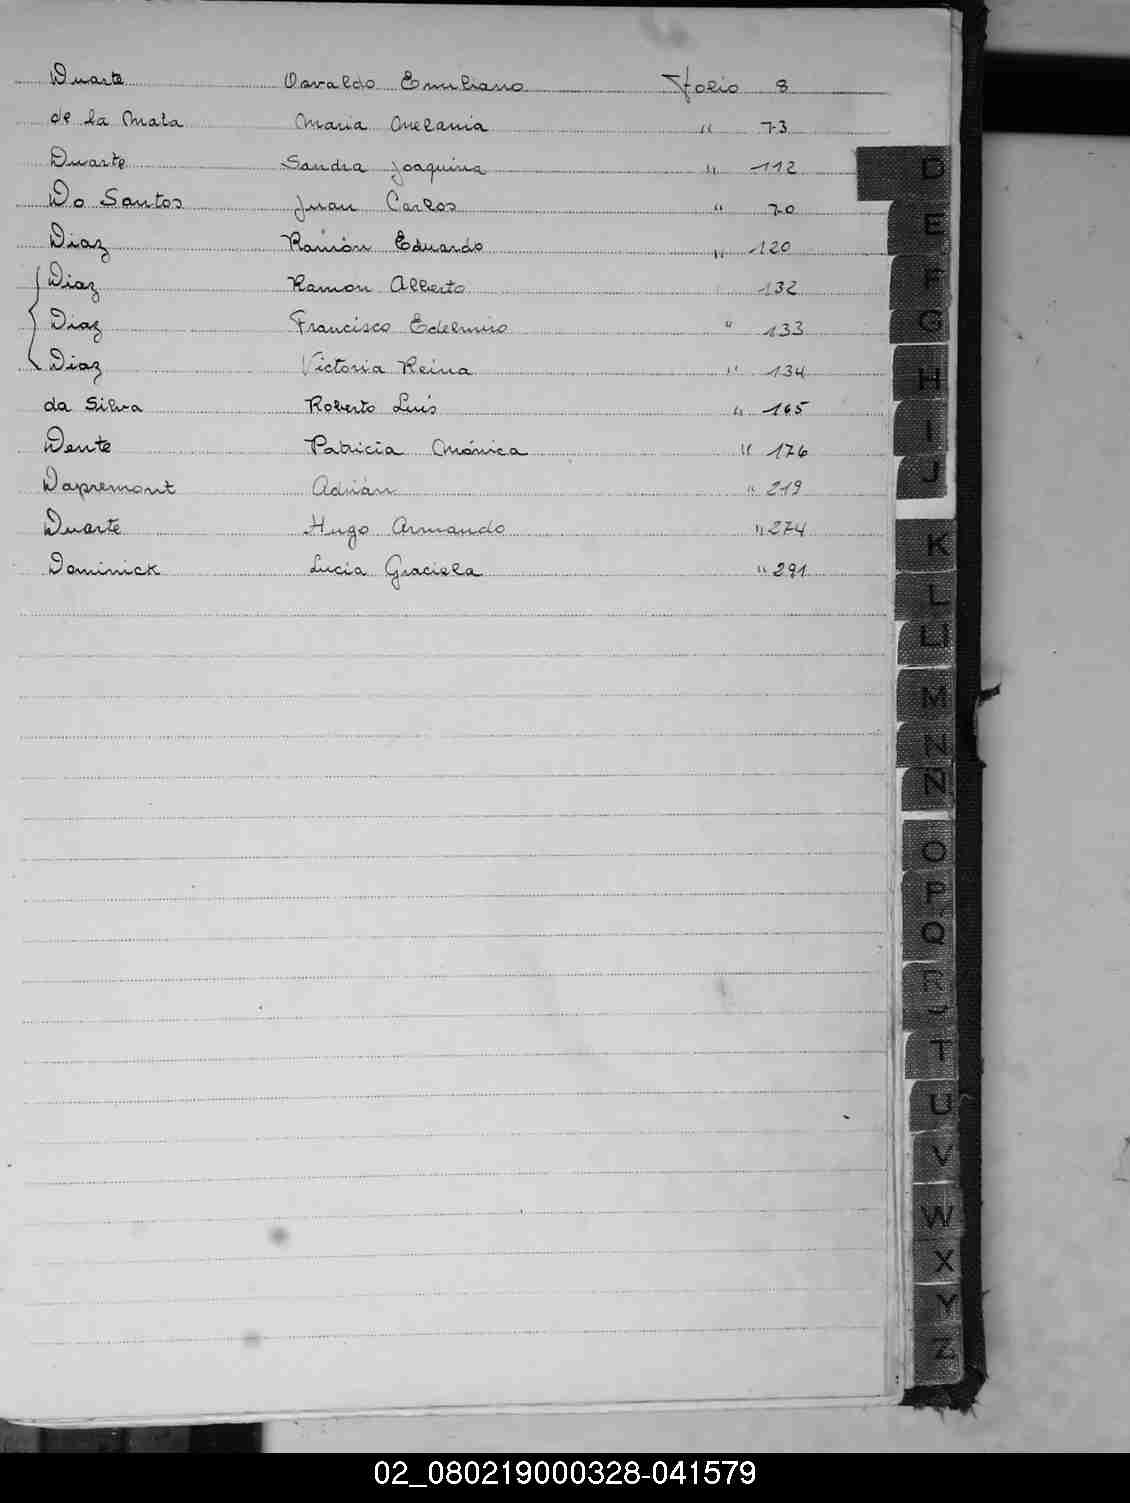 Duarte Osvaldo Emiliano Folio 8
de la Mata Maria Melania " 73
Duarte Sandra Joaquina " 112
Do Santos Juan Carlos " 70
Diaz Ramón Eduardo " 120
Diaz Ramon Alberto 132
Diaz Francisco Edelmiro " 133
Diaz Victoria Reina " 134
da Silva Roberto Luis " 165
Dente Patricia Mónica " 176
Dapremont Adrián " 219
Duarte Hugo Armando " 274
Dominick Lucia Graciela " 291
D
E
F
G
H
I
J
K
L
M
N
O
P
Q
R
T
U
V
W
X
Y
Z
02_080219000328-041579